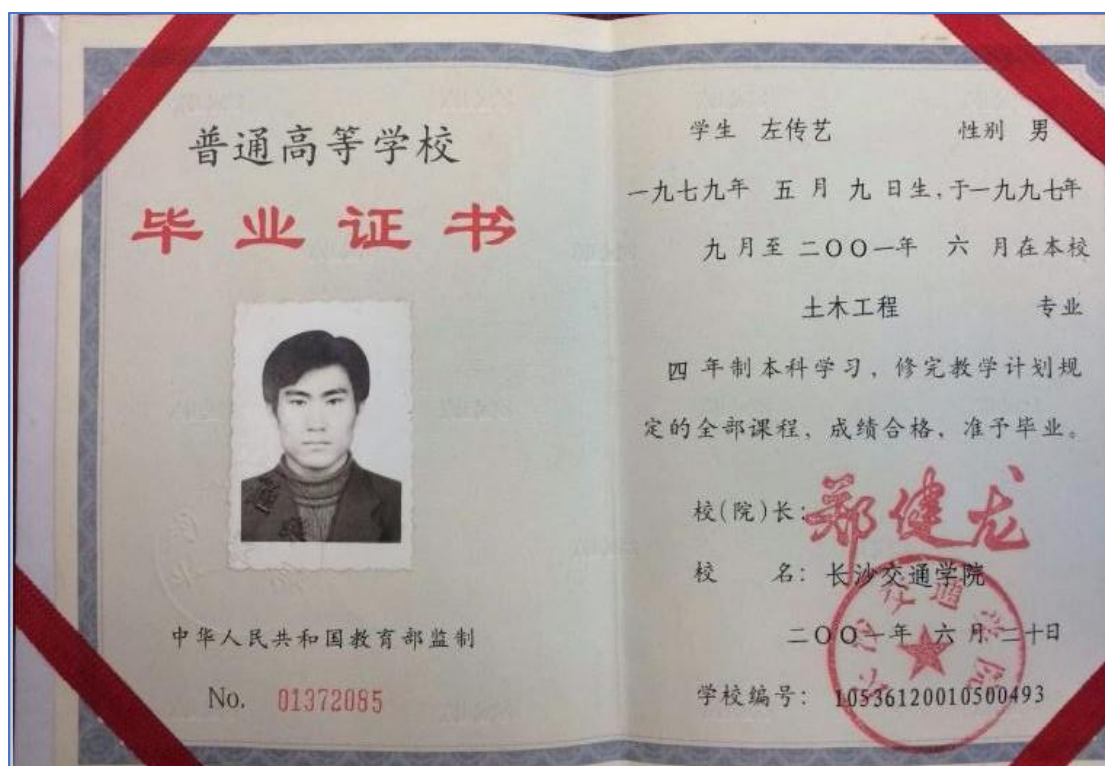 普通高等学校
毕业证书
中华人民共和国教育部监制
No. 01372085
学生 左传艺 性别 男
一九七九年 五月 九日生,于一九九七年
九月至二〇〇一年 六月在本校
土木工程 专业
四年制本科学习，修完教学计划规
定的全部课程，成绩合格，准予毕业。
校(院)长: 郑健龙
校 名: 长沙交通学院
二〇〇一年 六月二十日
学校编号: 10536120010500493
长沙交通学院